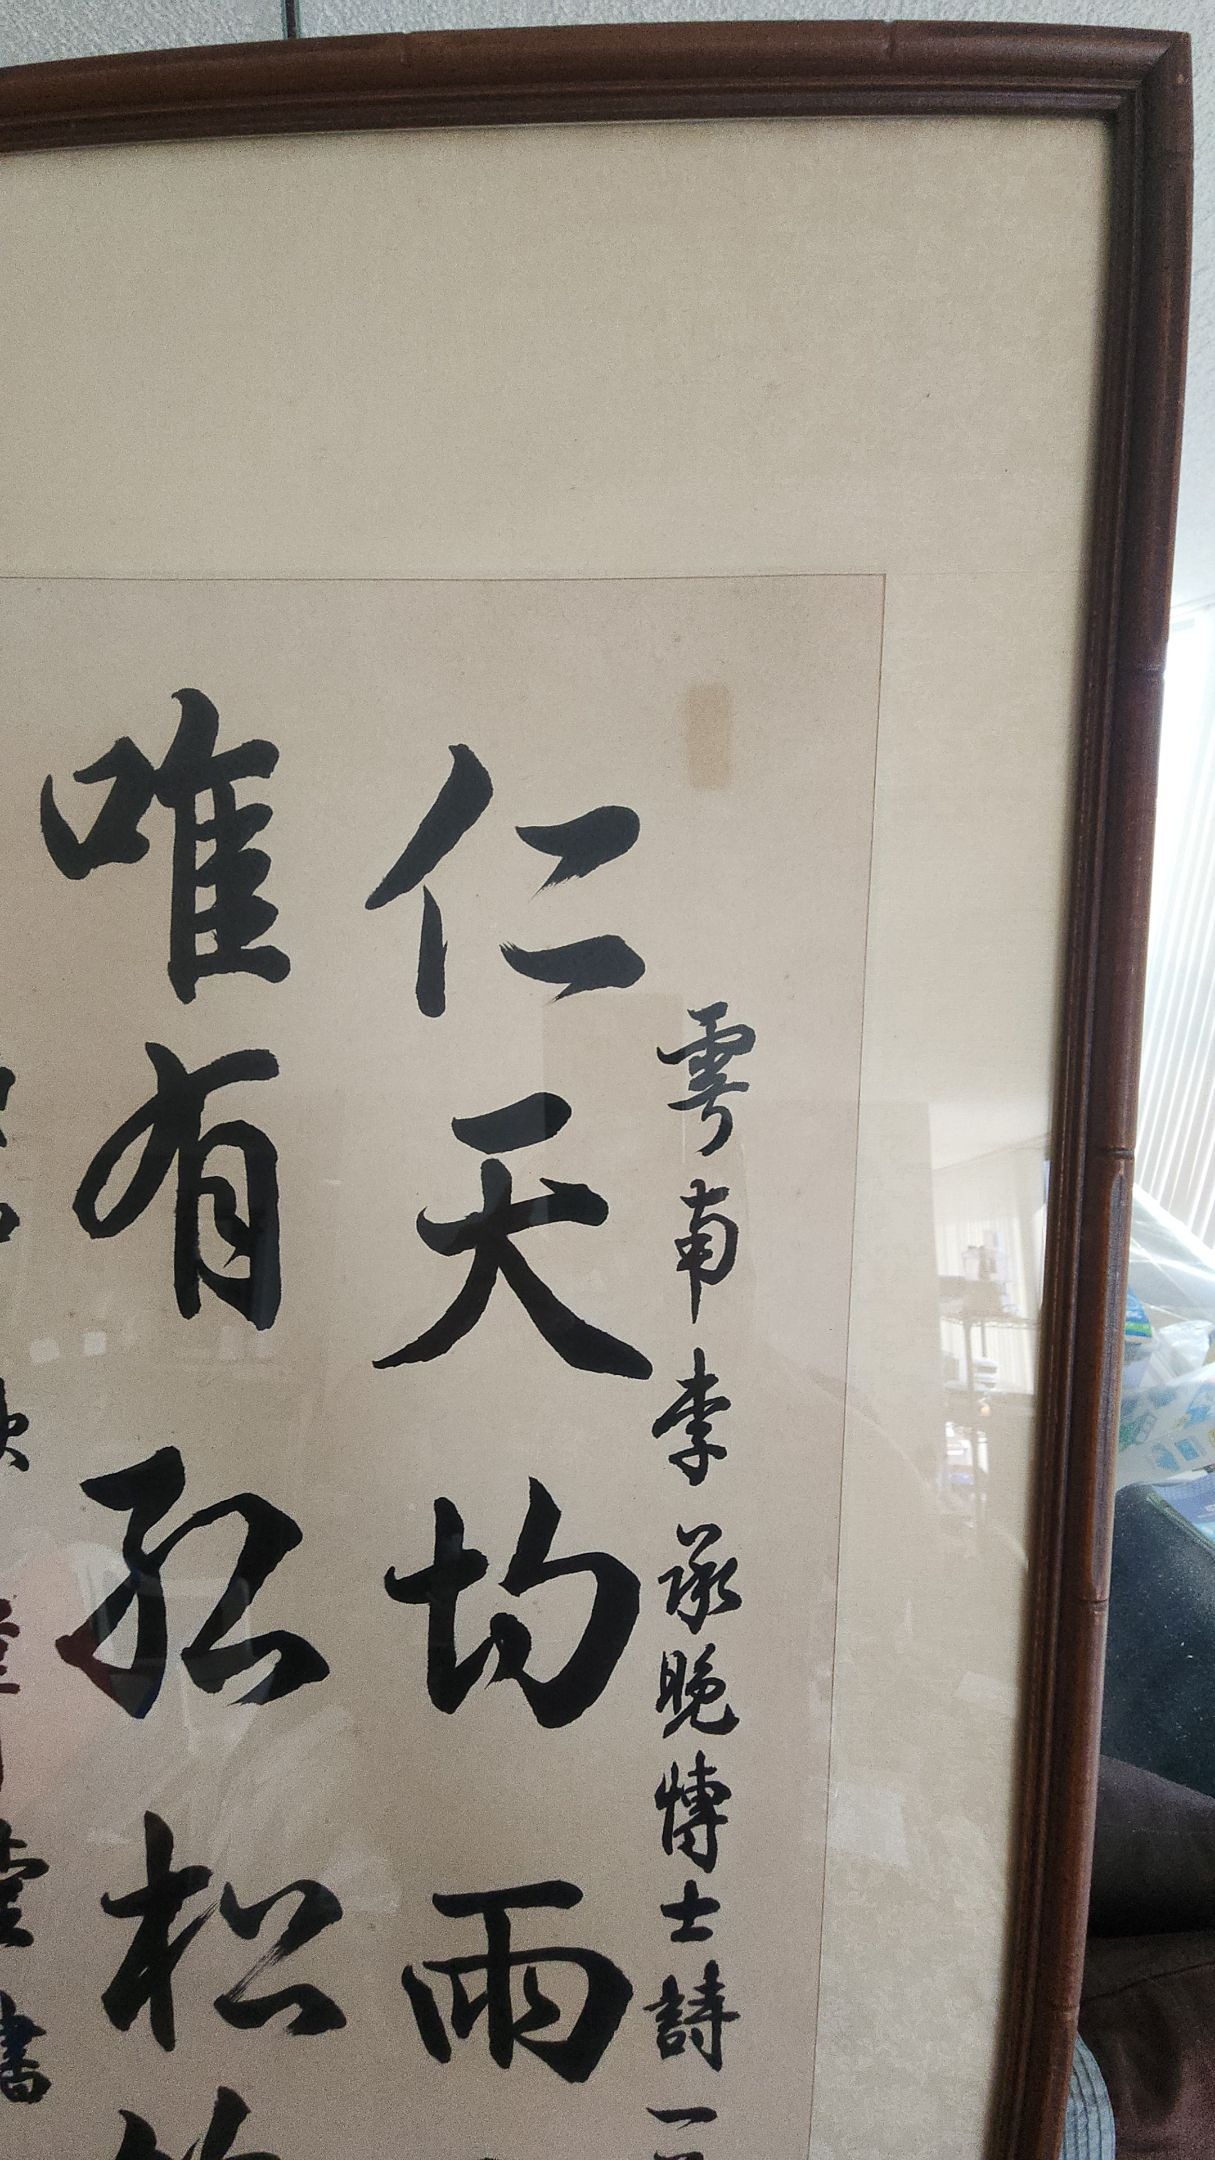 雲南李承晚博士詩一
仁天均雨
唯有孤松
書